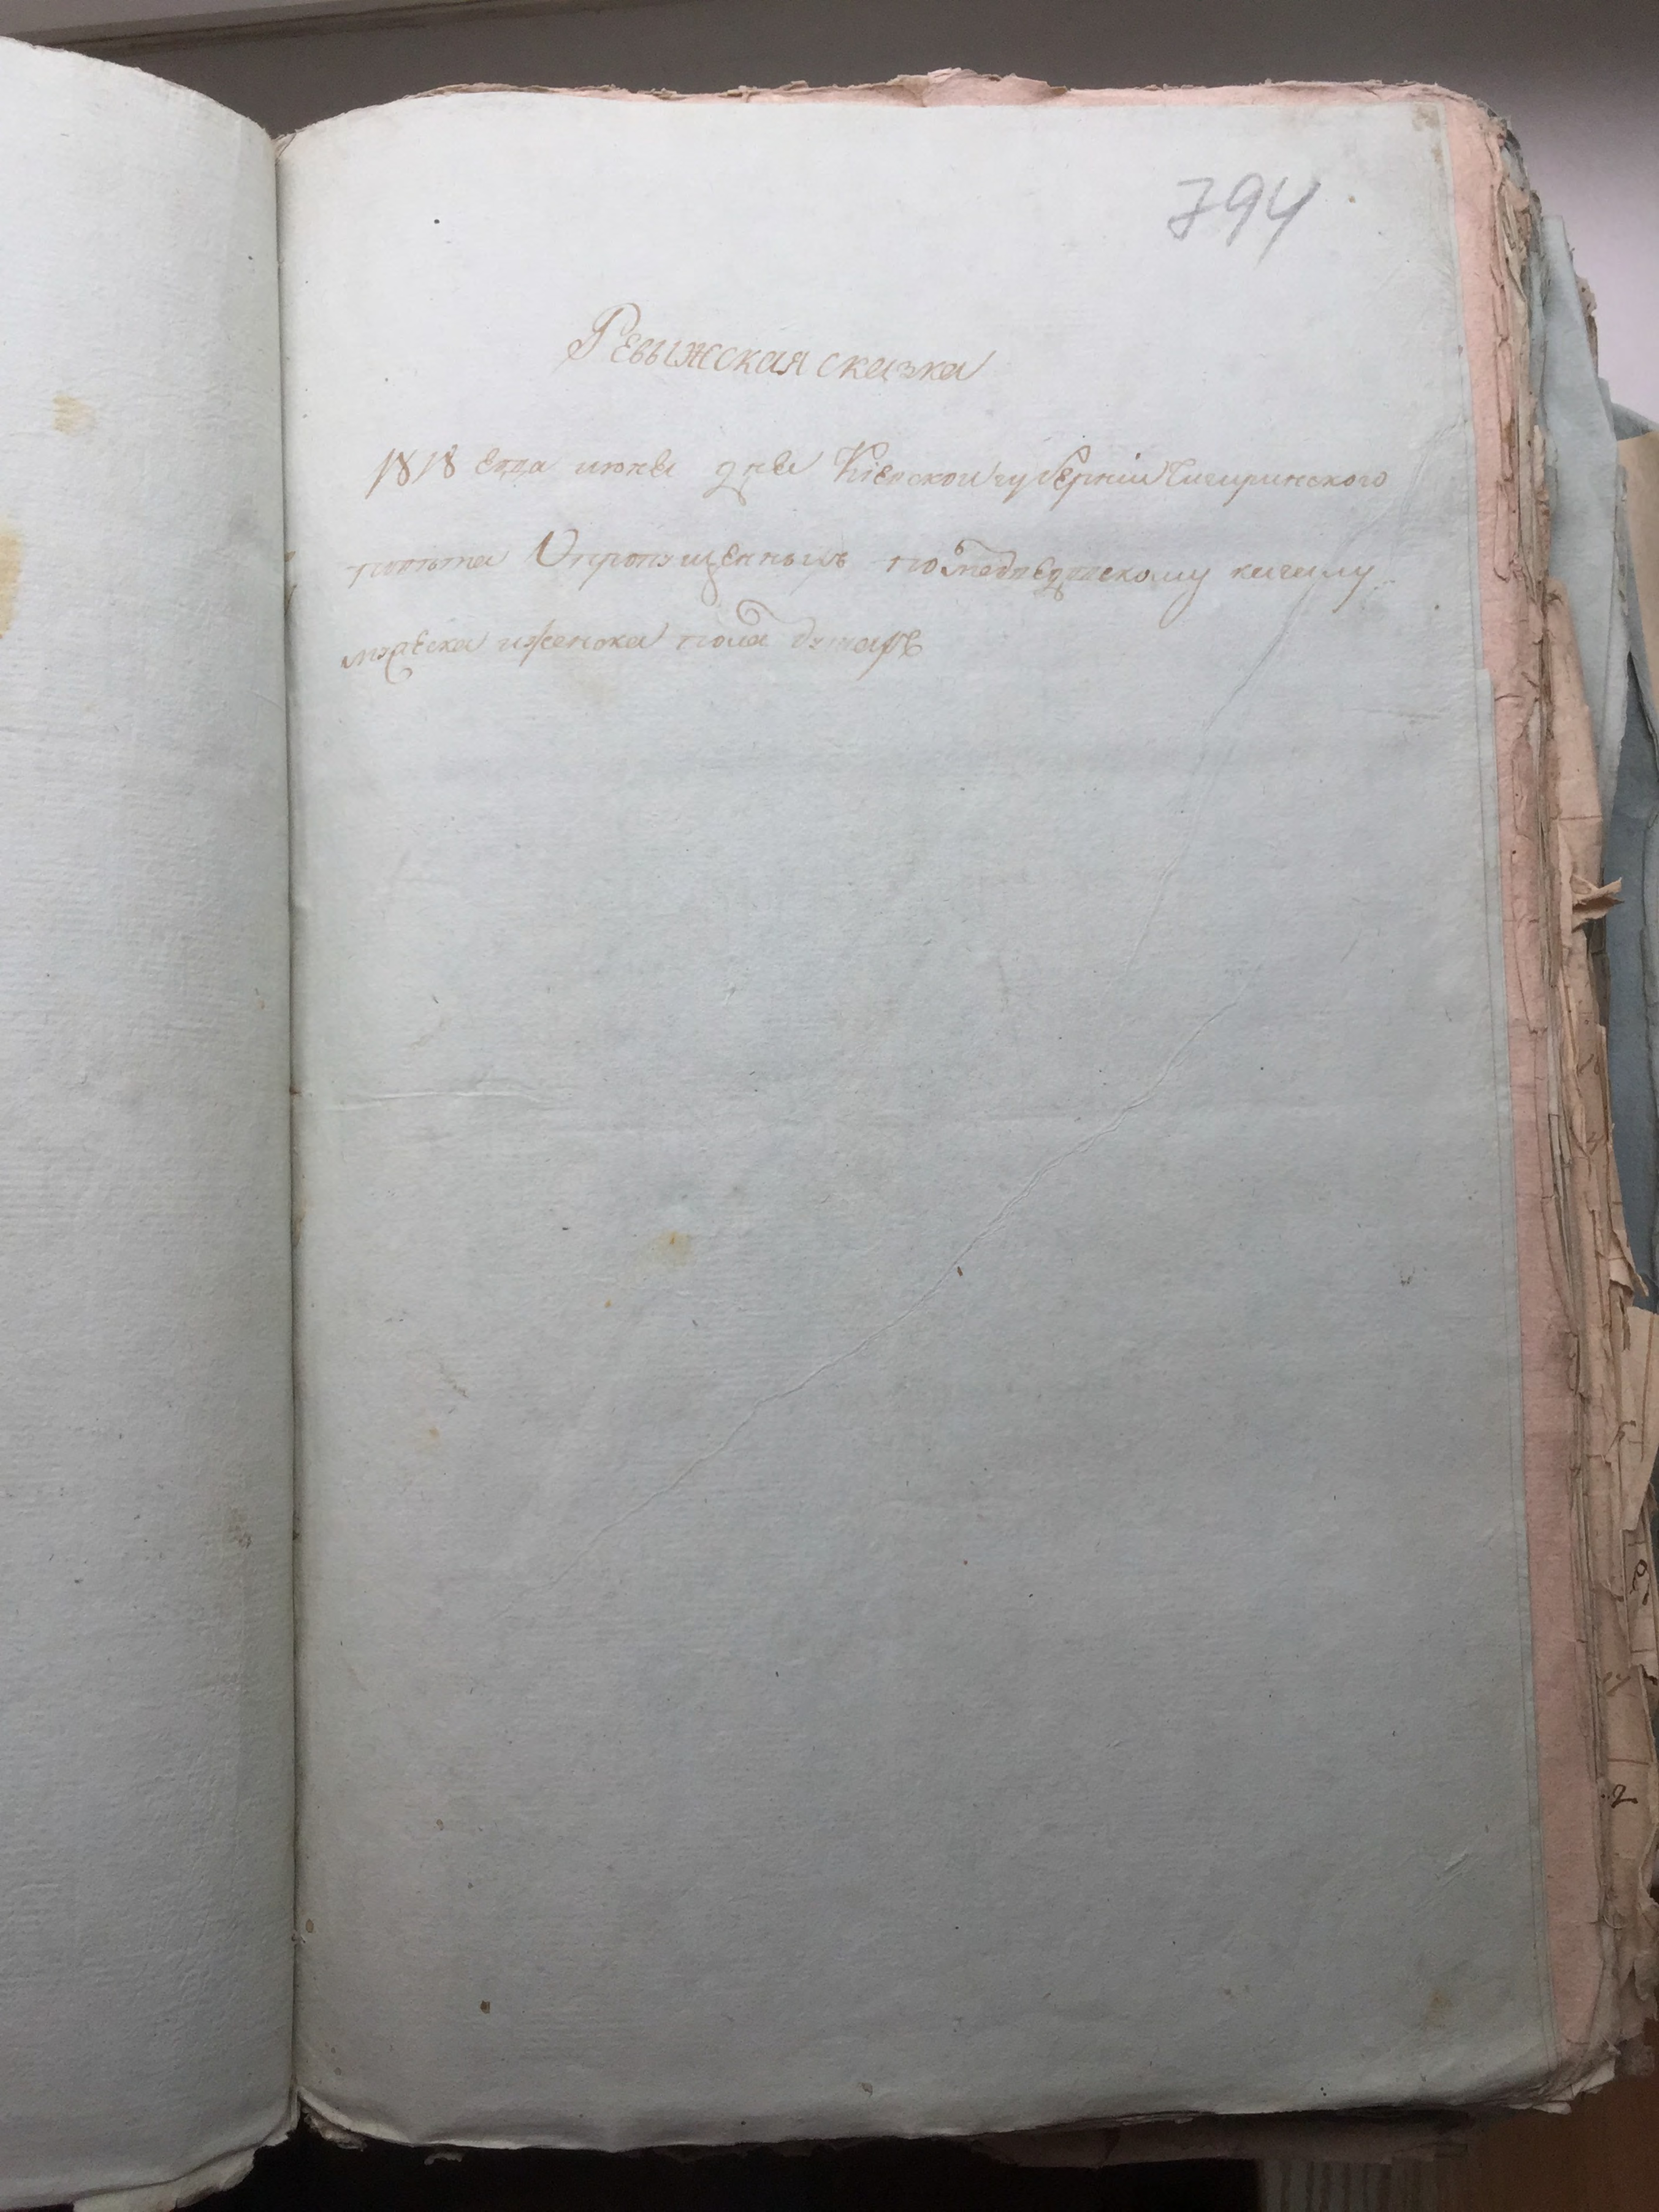 794
Ревыжская сказка
1818 года июня дня Кіевской губерніи Чигиринского
повѣта О пропущенныхъ по медведовскому кагалу
мужеска и женска пола душахъ